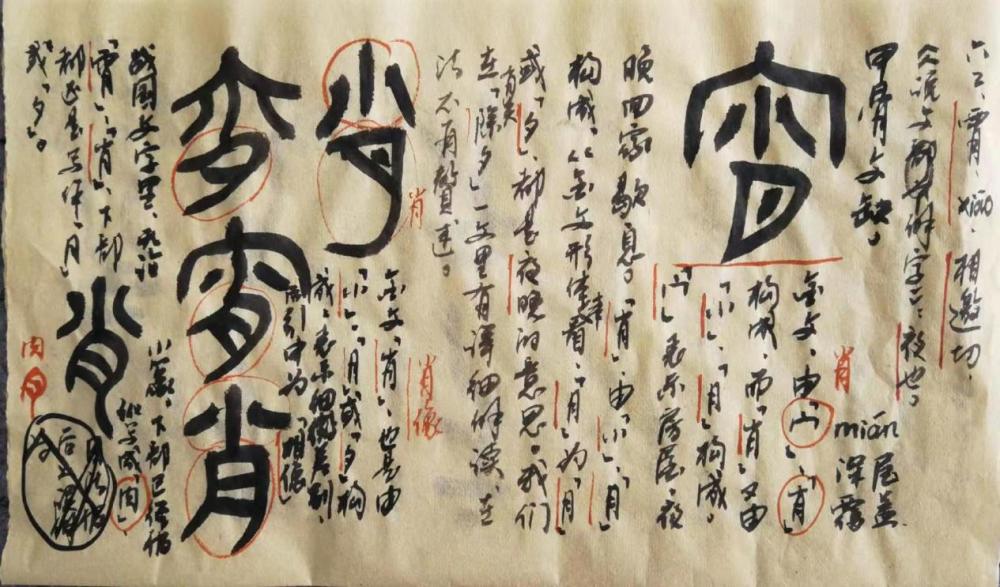 六二、宵、xiāo、相邀切。
《说文解字》：夜也。
甲骨文缺。
宀 mián 屋盖 深覆
肖
金文、由「宀」、「肖」
构成、而「肖」又由
「小」、「月」构成。
「宀」表示房屋、夜
宵
晚回家歇息。「肖」由「小」、「月」
构成、从金文形体来看、「月」为「月」
或「夕」、都是夜晚的意思。我们
在「除夕」一文里有详细解读、在
这不再赘述。
肖
肖
金文、「肖」也是由
「小」、「月」或「夕」构
成、表示细微差别、
后引申为「相像」
肖像
宵
肖
战国文字里、无论
「宵」、「肖」、下部
都是写作「月」
或「夕」。
肖
小篆、下部已经讹
化写成「肉」
肉